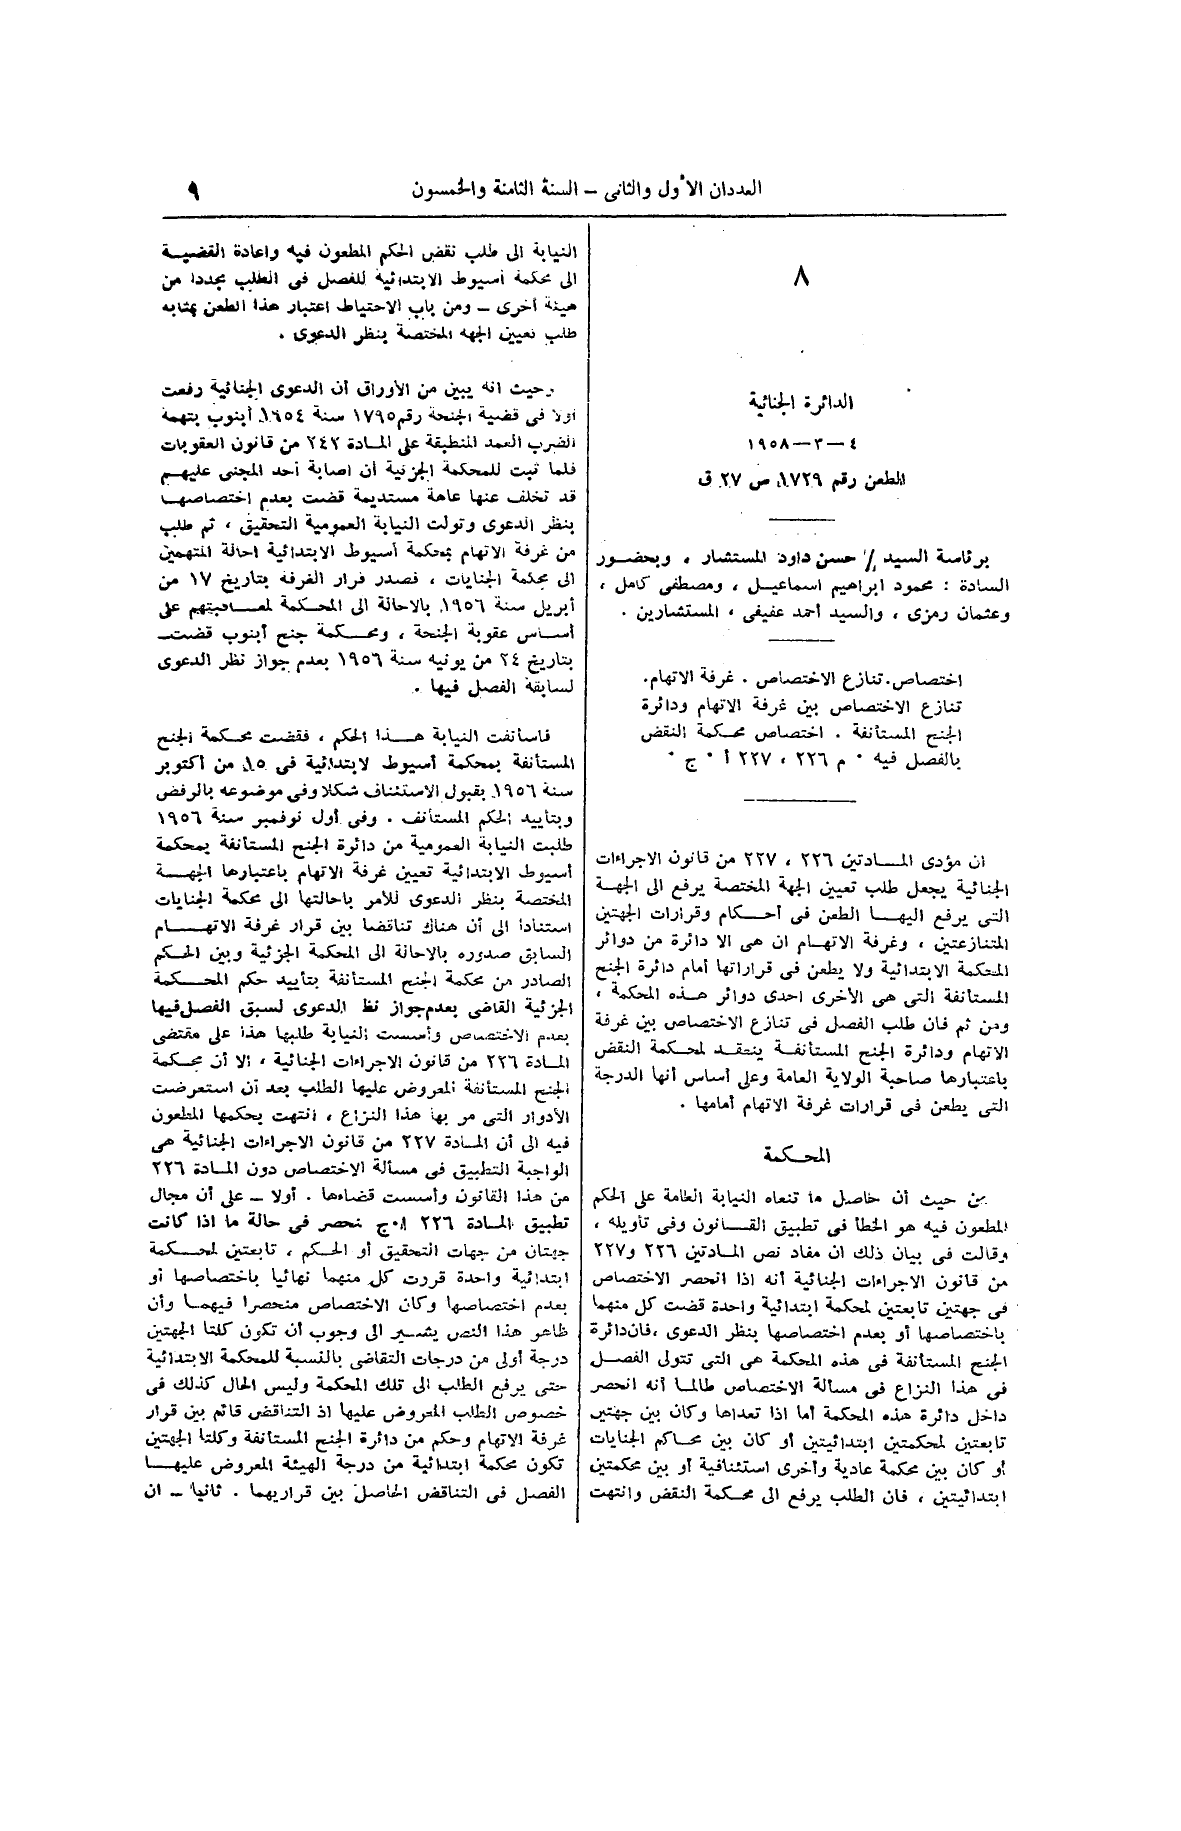 العددان الأول والثانى – السنة الثامنة والخمسون
٩
٨
الدائرة الجنائية
٤ – ٣ – ١٩٥٨
الطعن رقم ١٧٢٩ ص ٢٧ ق
برئاسة السيد / حسن داود المستشار ، وبحضور
السادة : محمود ابراهيم اسماعيل ، ومصطفى كامل ،
وعثمان رمزى ، والسيد أحمد عفيفى ، المستشارين .
اختصاص. تنازع الاختصاص . غرفة الاتهام.
تنازع الاختصاص بين غرفة الاتهام ودائرة
الجنح المستأنفة . اختصاص محكمة النقض
بالفصل فيه . م ٢٢٦ ، ٢٢٧ أ . ج .
ان مؤدى المادتين ٢٢٦ ، ٢٢٧ من قانون الاجراءات
الجنائية يجعل طلب تعيين الجهة المختصة يرفع الى الجهة
التى يرفع اليها الطعن فى أحكام وقرارات الجهتين
المتنازعتين ، وغرفة الاتهام ان هى الا دائرة من دوائر
المحكمة الابتدائية ولا يطعن فى قراراتها أمام دائرة الجنح
المستأنفة التى هى الأخرى احدى دوائر هذه المحكمة ،
ومن ثم فان طلب الفصل فى تنازع الاختصاص بين غرفة
الاتهام ودائرة الجنح المستأنفة ينعقد لمحكمة النقض
باعتبارها صاحبة الولاية العامة وعلى أساس أنها الدرجة
التى يطعن فى قرارات غرفة الاتهام أمامها .
المحكمة
من حيث أن حاصل ما تنعاه النيابة العامة على الحكم
المطعون فيه هو الخطأ فى تطبيق القانون وفى تأويله ،
وقالت فى بيان ذلك ان مفاد نص المادتين ٢٢٦ و٢٢٧
من قانون الاجراءات الجنائية أنه اذا انحصر الاختصاص
فى جهتين تابعتين لمحكمة ابتدائية واحدة قضت كل منهما
باختصاصها أو بعدم اختصاصها بنظر الدعوى ،فان دائرة
الجنح المستأنفة فى هذه المحكمة هى التى تتولى الفصل
فى هذا النزاع فى مسألة الاختصاص طالما أنه انحصر
داخل دائرة هذه المحكمة أما اذا تعداها وكان بين جهتين
تابعتين لمحكمتين ابتدائيتين أو كان بين محاكم الجنايات
أو كان بين محكمة عادية وأخرى استئنافية أو بين محكمتين
ابتدائيتين ، فان الطلب يرفع الى محكمة النقض وانتهت
النيابة الى طلب نقض الحكم المطعون فيه واعادة القضية
الى محكمة أسيوط الابتدائية للفصل فى الطلب مجددا من
هيئة أخرى – ومن باب الاحتياط اعتبار هذا الطعن بمثابه
طلب تعيين الجهه المختصة بنظر الدعوى .
وحيث انه يبين من الأوراق أن الدعوى الجنائية رفعت
أولا فى قضية الجنحة رقم ١٧٩٥ سنة ١٩٥٤ أبنوب بتهمة
الضرب العمد المنطبقة على المادة ٢٤٢ من قانون العقوبات
فلما تبت للمحكمة الجزئية أن اصابة أحد المجنى عليهم
قد تخلف عنها عاهة مستديمة قضت بعدم اختصاصها
بنظر الدعوى وتولت النيابة العمومية التحقيق ، ثم طلب
من غرفة الاتهام بمحكمة أسيوط الابتدائية احالة المتهمين
الى محكمة الجنايات ، فصدر قرار الغرفه بتاريخ ١٧ من
أبريل سنة ١٩٥٦ بالاحالة الى المحكمة لمعاقبتهم على
أساس عقوبة الجنحة ، ومحكمة جنح أبنوب قضت
بتاريخ ٢٤ من يونيه سنة ١٩٥٦ بعدم جواز نظر الدعوى
لسابقة الفصل فيها .
فاستأنفت النيابة هذا الحكم ، فقضت محكمة الجنح
المستأنفة بمحكمة أسيوط لابتدائية فى ١٥ من أكتوبر
سنة ١٩٥٦ بقبول الاستئناف شكلا وفى موضوعه بالرفض
وبتأييد الحكم المستأنف . وفى أول نوفمبر سنة ١٩٥٦
طلبت النيابة العمومية من دائرة الجنح المستأنفة بمحكمة
أسيوط الابتدائية تعيين غرفة الاتهام باعتبارها الجهة
المختصة بنظر الدعوى للأمر باحالتها الى محكمة الجنايات
استنادا الى أن هناك تناقضا بين قرار غرفة الاتهام
السابق صدوره بالاحالة الى المحكمة الجزئية وبين الحكم
الصادر من محكمة الجنح المستأنفة بتأييد حكم المحكمة
الجزئية القاضى بعدم جواز نظ الدعوى لسبق الفصل فيها
بعدم الاختصاص وأسست النيابة طلبها هذا على مقتضى
المادة ٢٢٦ من قانون الاجراءات الجنائية ، الا أن محكمة
الجنح المستأنفة المعروض عليها الطلب بعد أن استعرضت
الأدوار التى مر بها هذا النزاع ، انتهت بحكمها المطعون
فيه الى أن المادة ٢٢٧ من قانون الاجراءات الجنائية هى
الواجبة التطبيق فى مسألة الاختصاص دون المادة ٢٢٦
من هذا القانون وأسست قضاءها . أولا – على أن مجال
تطبيق المادة ٢٢٦ ا.ج ينحصر فى حالة ما اذا كانت
جهتان من جهات التحقيق أو الحكم ، تابعتين لمحكمة
ابتدائية واحدة قررت كل منهما نهائيا باختصاصها أو
بعدم اختصاصها وكان الاختصاص منحصرا فيهما وأن
ظاهر هذا النص يشير الى وجوب أن تكون كلتا الجهتين
درجة أولى من درجات التقاضى بالنسبة للمحكمة الابتدائية
حتى يرفع الطلب الى تلك المحكمة وليس الحال كذلك فى
خصوص الطلب المعروض عليها اذ التناقض قائم بين قرار
غرفة الاتهام وحكم من دائرة الجنح المستأنفة وكلتا الجهتين
تكون محكمة ابتدائية من درجة الهيئة المعروض عليها
الفصل فى التناقض الحاصل بين قراريهما . ثانيا – ان